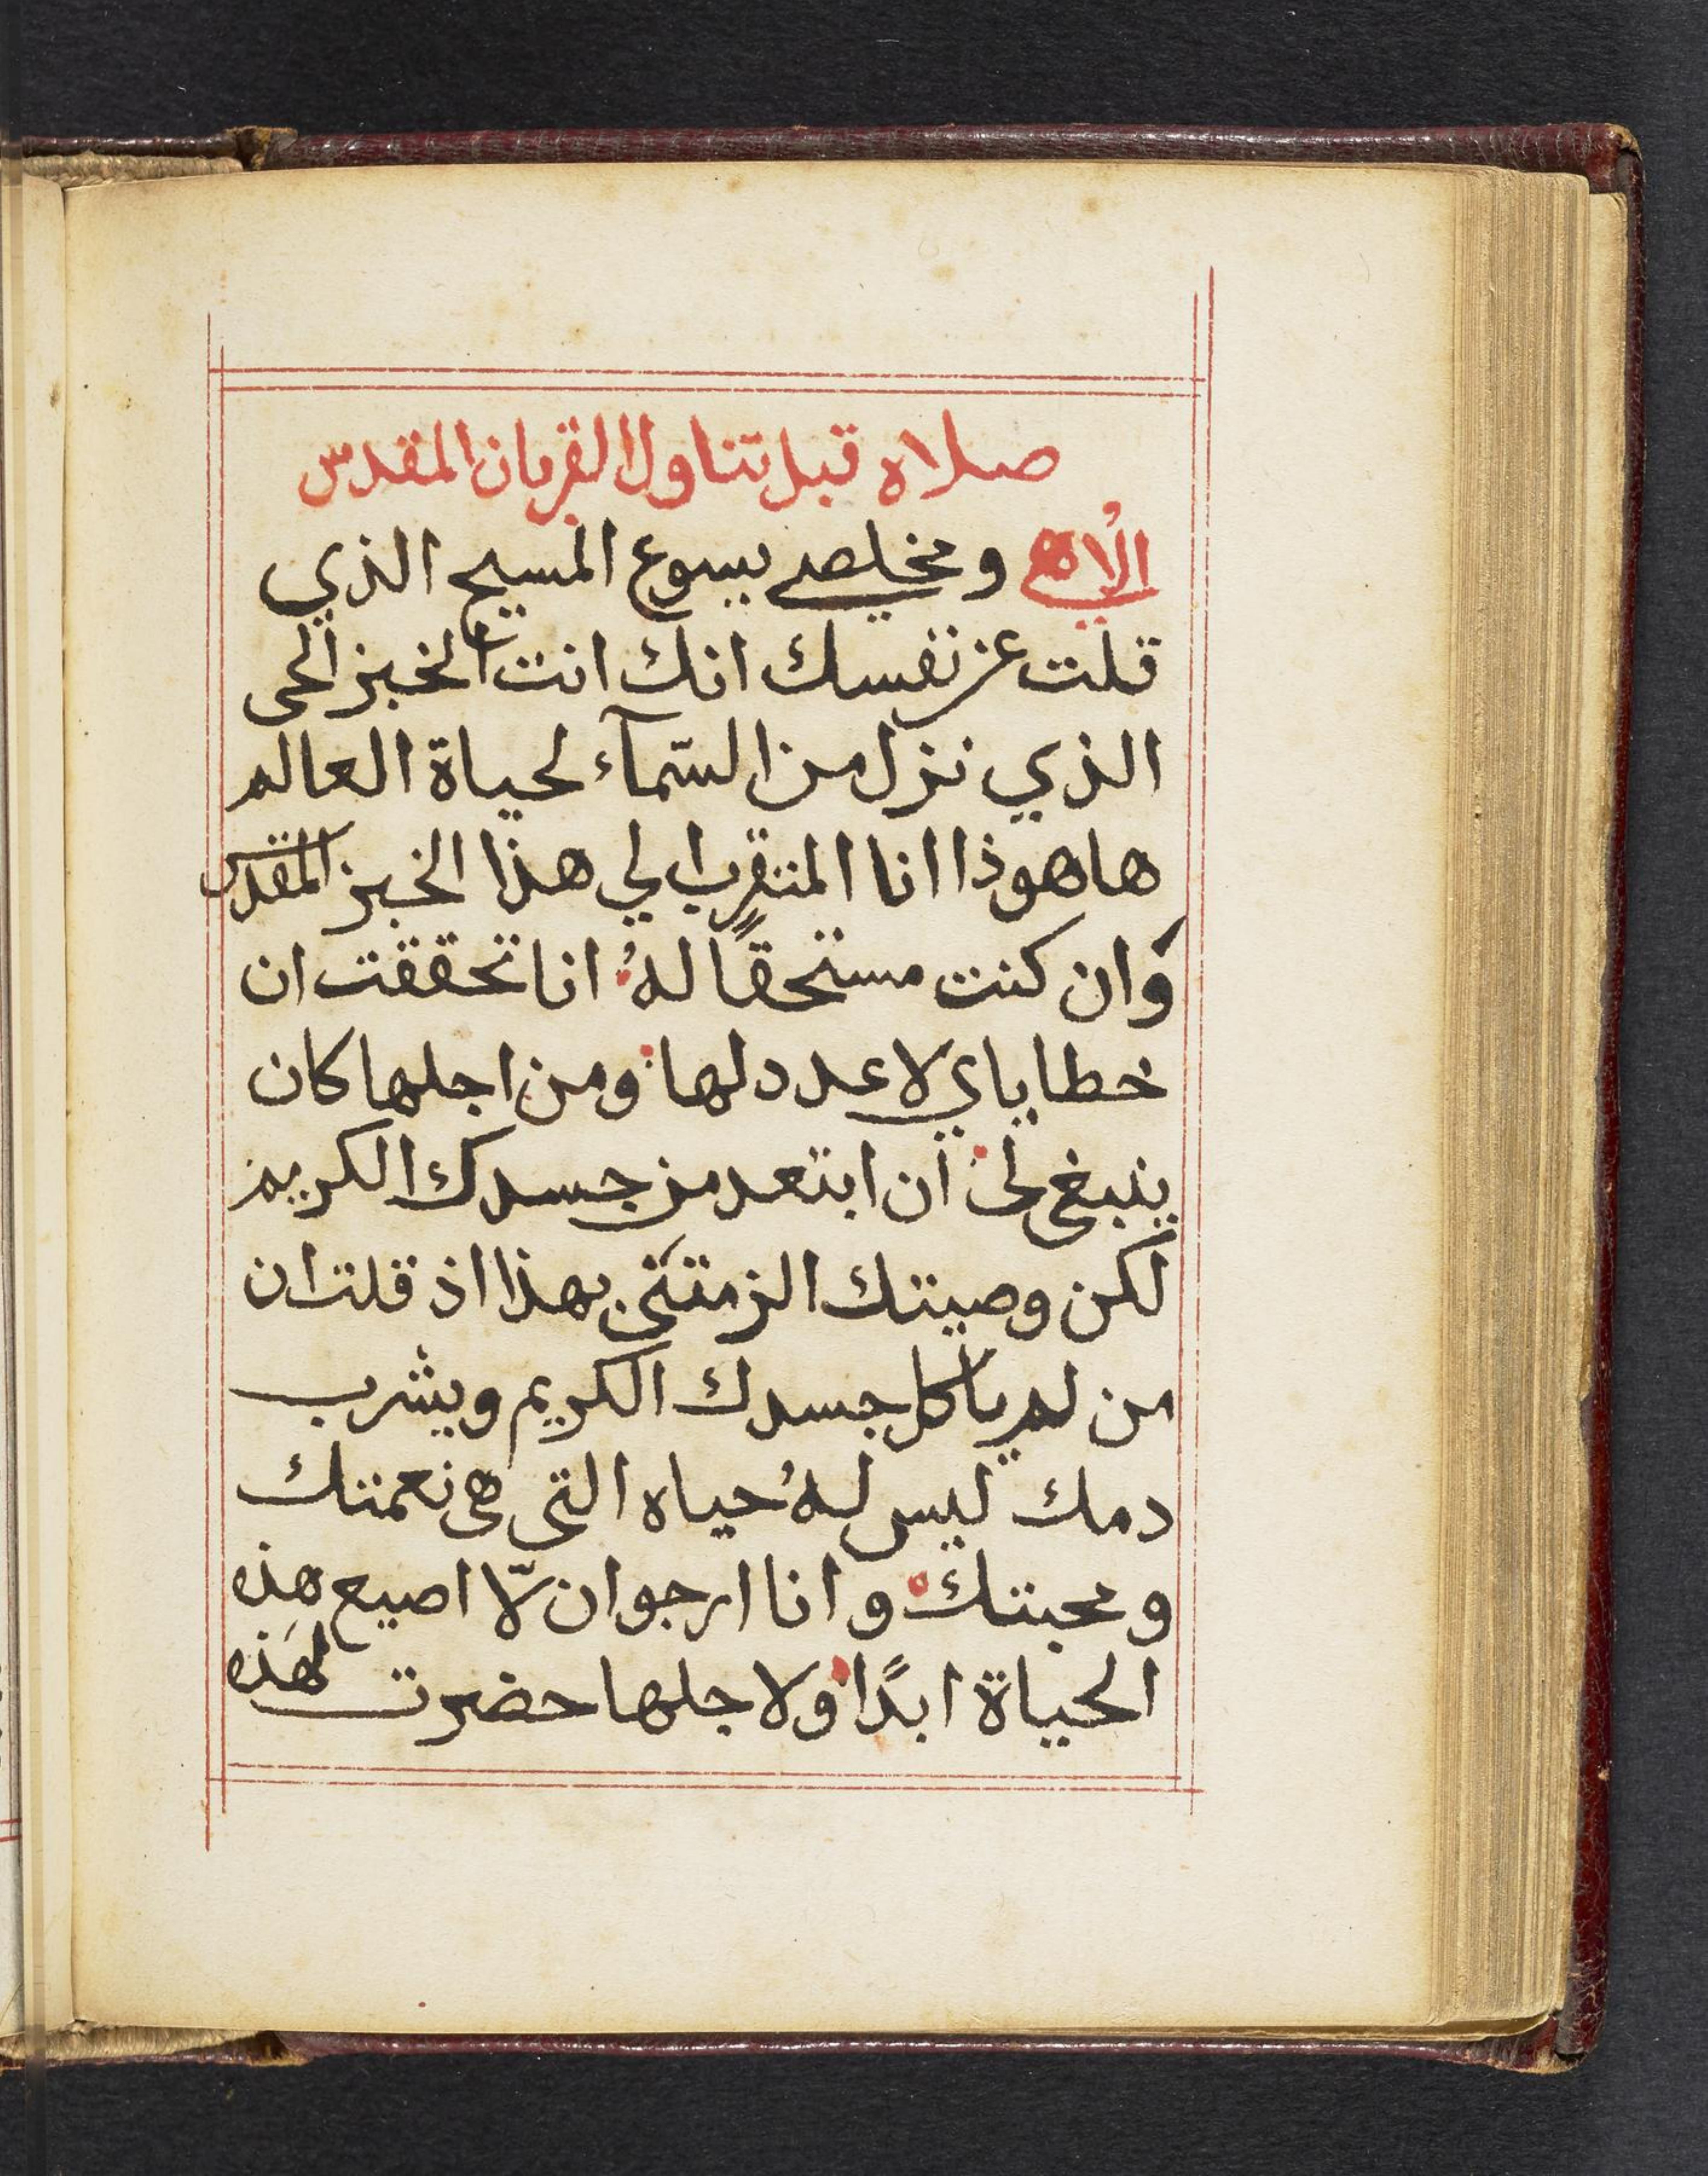 صلاه قبل تناول القربان المقدس
الاهي ومخلصي يسوع المسيح الذي
قلت عن نفسك انك انت الخبز الحى
الذي نزل من السّمآء لحياة العالم
هاهوذا انا المتقرب الي هذا الخبز المقدس
وان كنت مستحقًا لهُ انا تحققت ان
خطاياي لا عدد لها ومن اجلها كان
ينبغى لى ان ابتعد من جسدك الكريم
لكن وصيتك الزمتنى بهذا اذ قلت ان
من لم ياكل جسدك الكريم ويشرب
دمك ليس لهُ حياه التى هى نعمتك
ومحبتك وانا ارجو ان لّا اضيع هذه
الحياة ابدًا ولاجلها حضرت لهذه